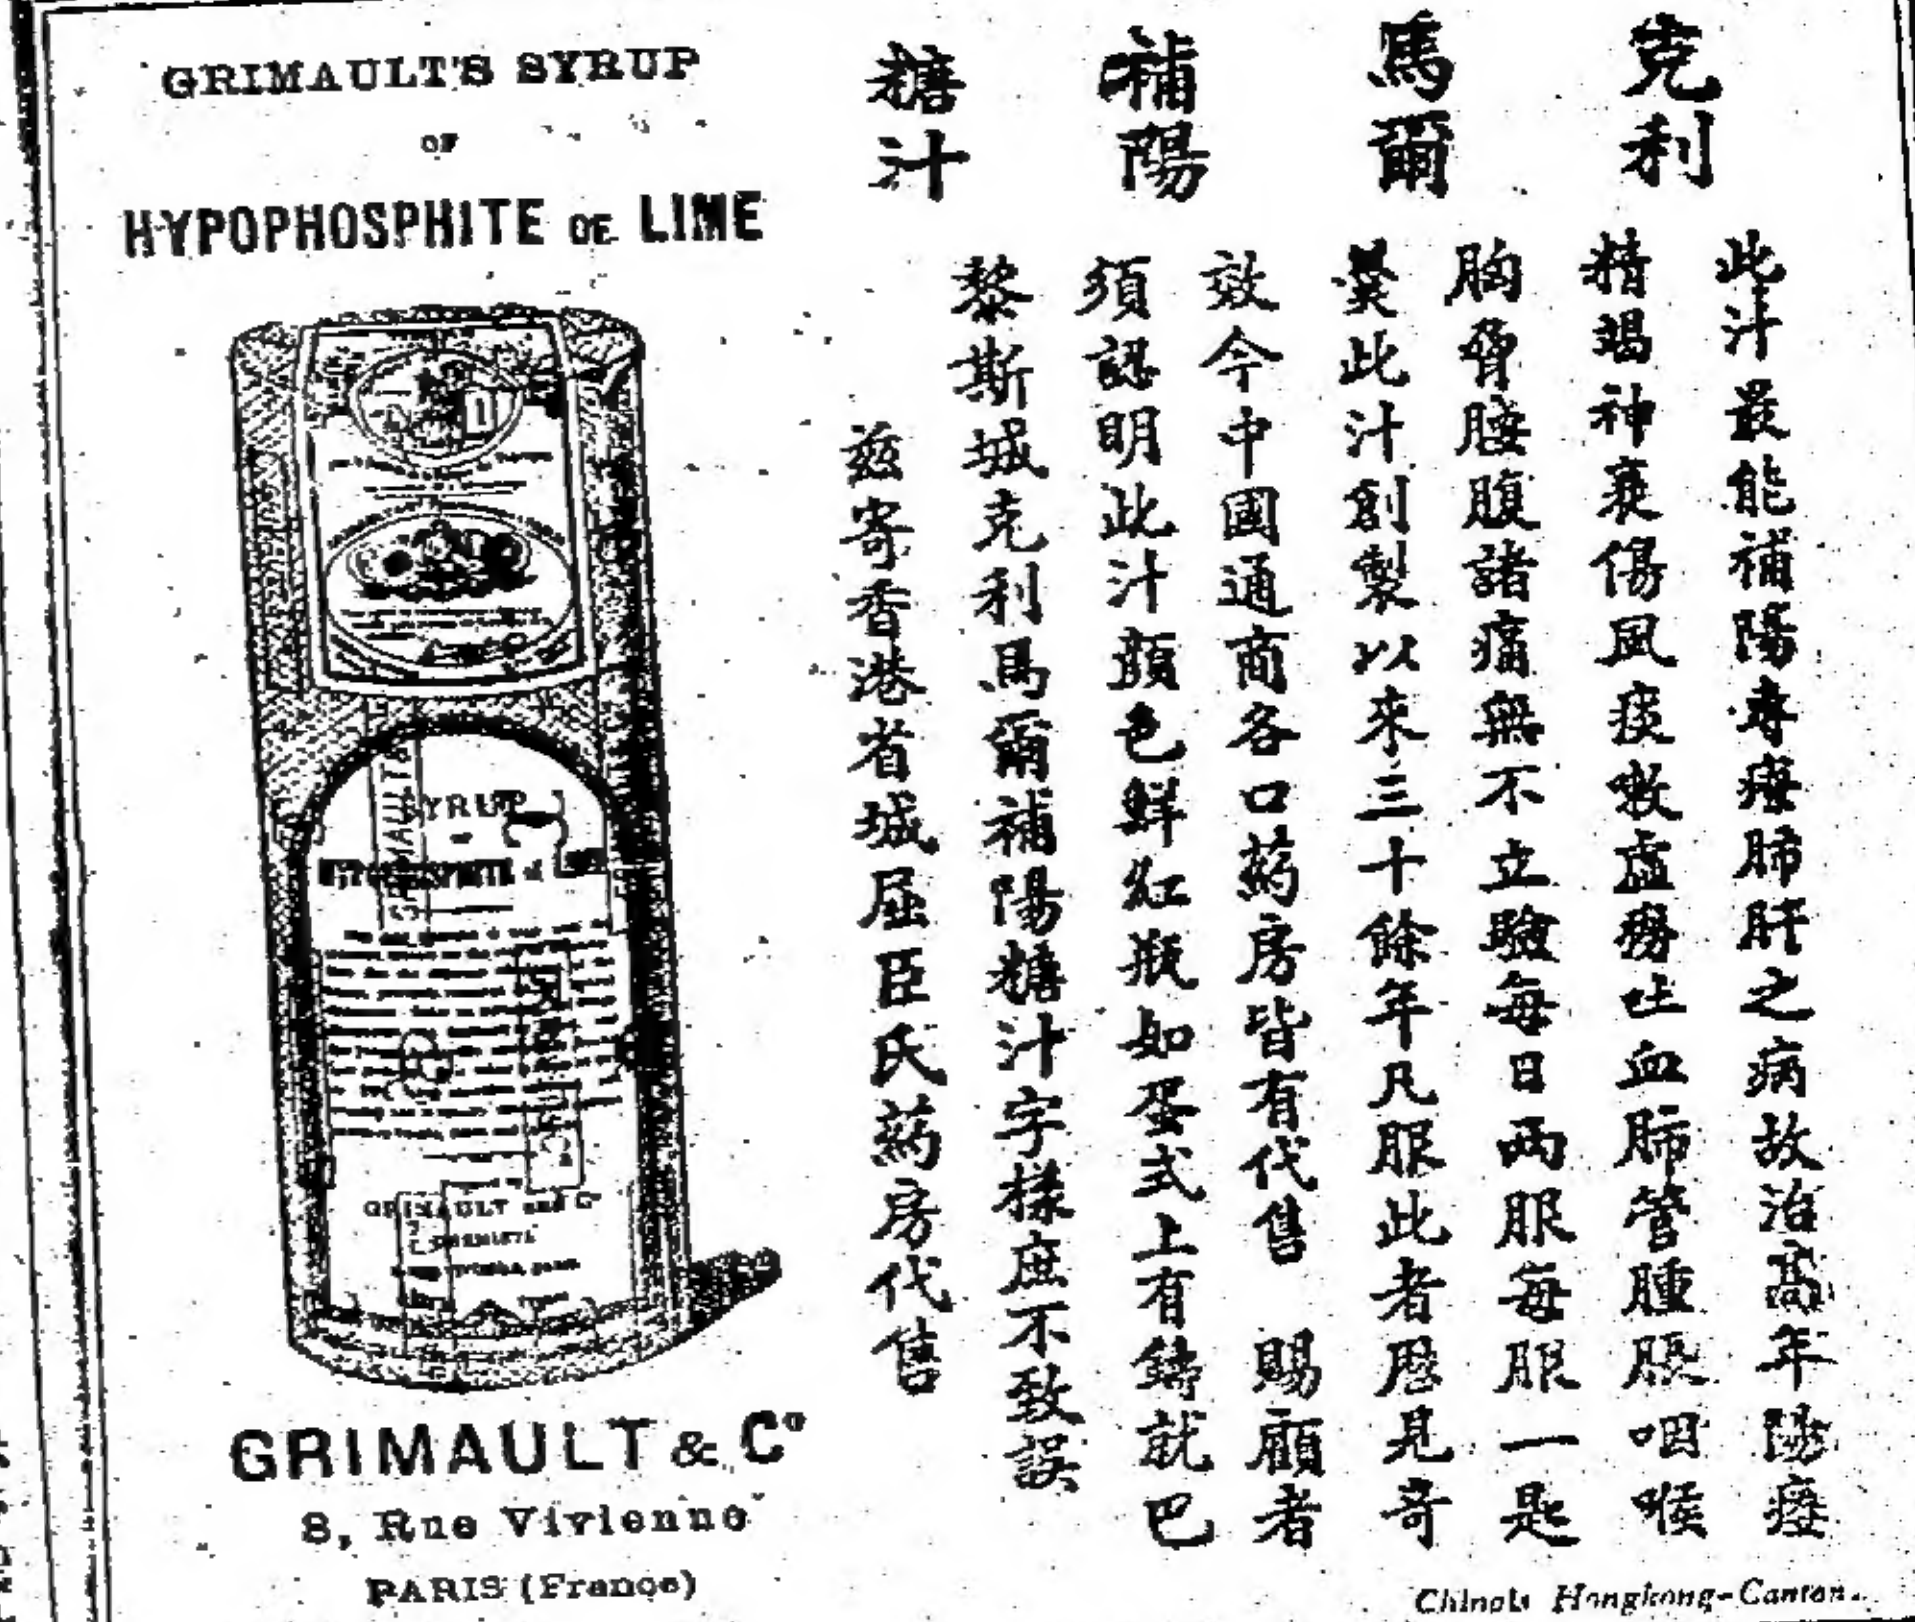 GRIMAULT'S SYRUP
OF
HYPOPHOSPHITE OF LIME
SYRUP
GRIMAULT and Co
GRIMAULT & Co
8, Rue Vivienne
PARIS (France)
克利
馬爾
補陽
糖汁
此汁最能補陽專療肺肝之病故治高年陽痿
精竭神衰傷風痰嗽虛癆吐血肺管腫脹咽喉
胸脅腰腹諸痛無不立驗每日兩服每服一匙
羹此汁創製以來三十餘年凡服此者歷見奇
效今中國通商各口葯房皆有代售 賜顧者
須認明此汁顏色鮮紅瓶如蛋式上有鑄就巴
黎斯城克利馬爾補陽糖汁字樣庶不致誤
茲寄香港省城屈臣氏葯房代售
Chinois Hongkong-Canton.